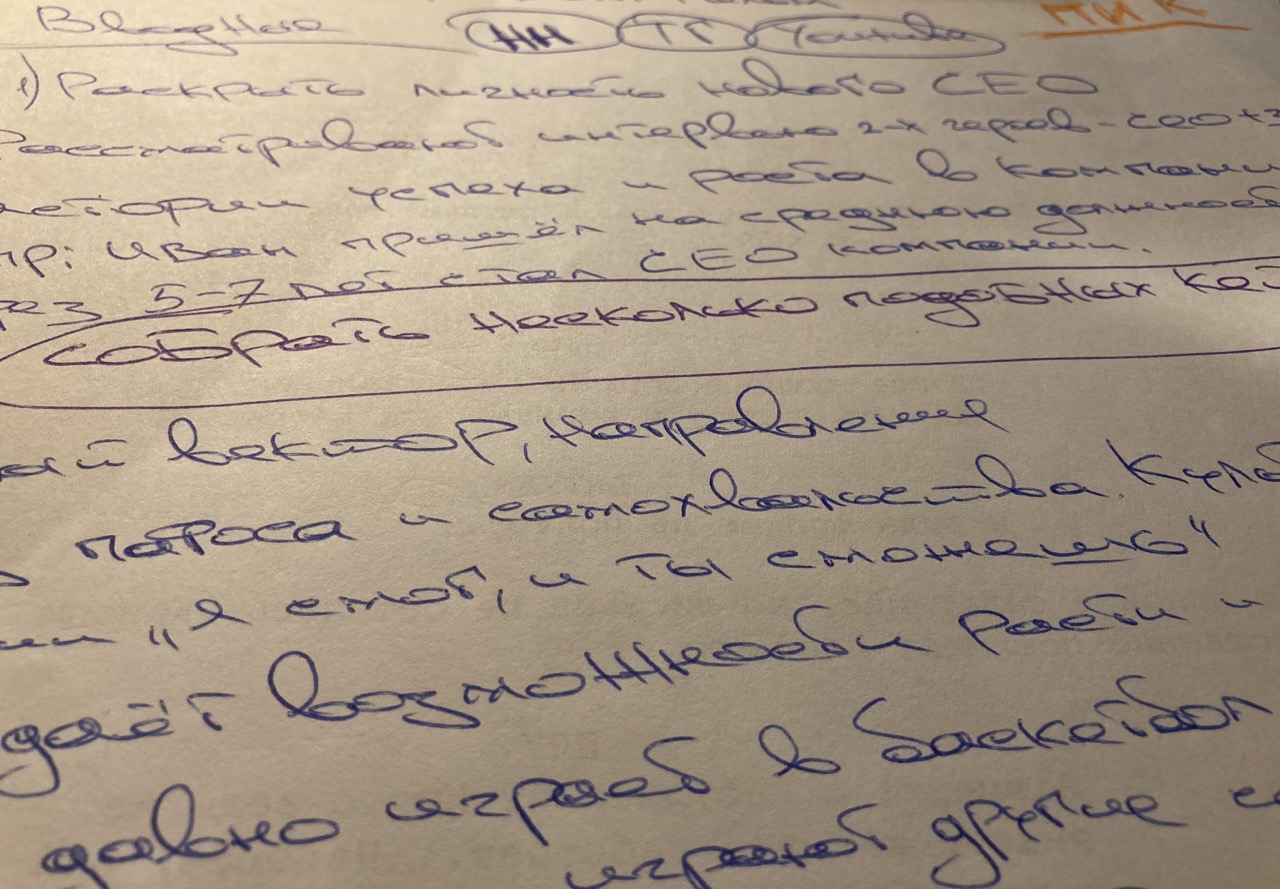 Вводные НН ТГ Youtube ПИК
1) Раскрыть личность нового CEO
Рассматривают интервью 2-х героев - CEO + 3
истории успеха и роста в компани
пр: Иван пришёл на среднюю должност
рез 5-7 лет стал CEO компании.
собрать несколько подобных кей
ый вектор, направление
пафоса и самохвальства. Куль
"я смог, и ты сможешь"
даёт возможности расти и
давно играет в баскетбол
играют другие